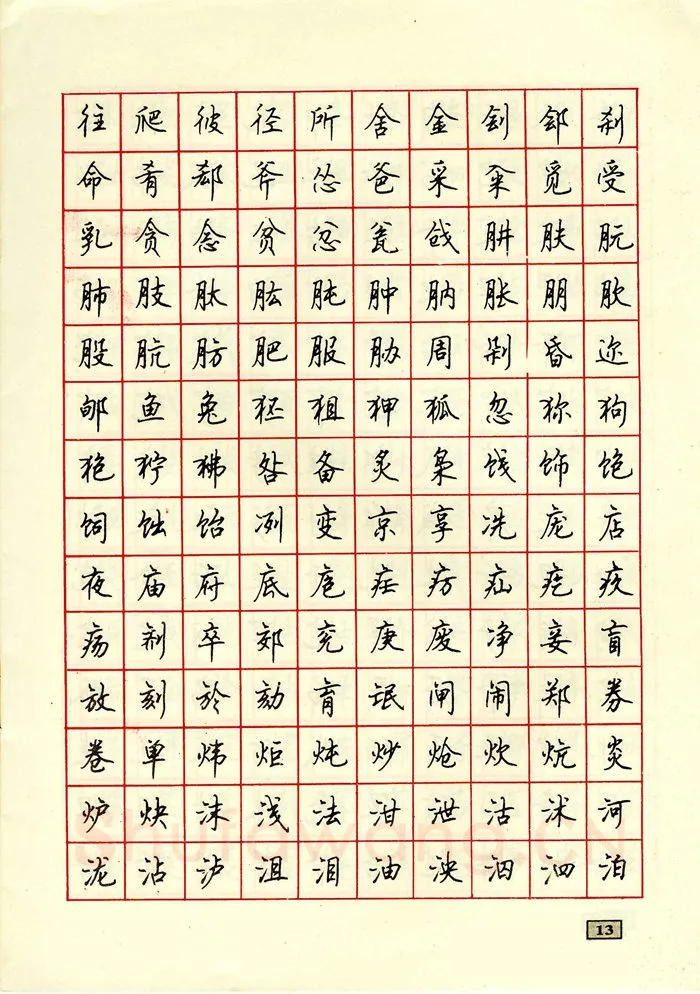 往爬彼径所舍金刽郐刹
命肴郄斧怂爸采籴觅受
乳贪念贫忿瓮戗肼肤朊
肺肢肽肱肫肿肭胀朋肷
股肮肪肥服胁周剁昏迩
郇鱼兔狉狙狎狐忽狝狗
狍狞狒咎备炙枭饯饰饱
饲蚀饴冽变京享冼庞店
夜庙府底庖疟疠疝疙疚
疡剂卒郊兖庚废净妾盲
放刻於劾育氓闸闹郑券
卷单炜炬炖炒炝炊炕炎
炉炔沫浅法泔泄沽沭河
泷沾泸沮泪油泱泅泗泊
shufawang.CN
13